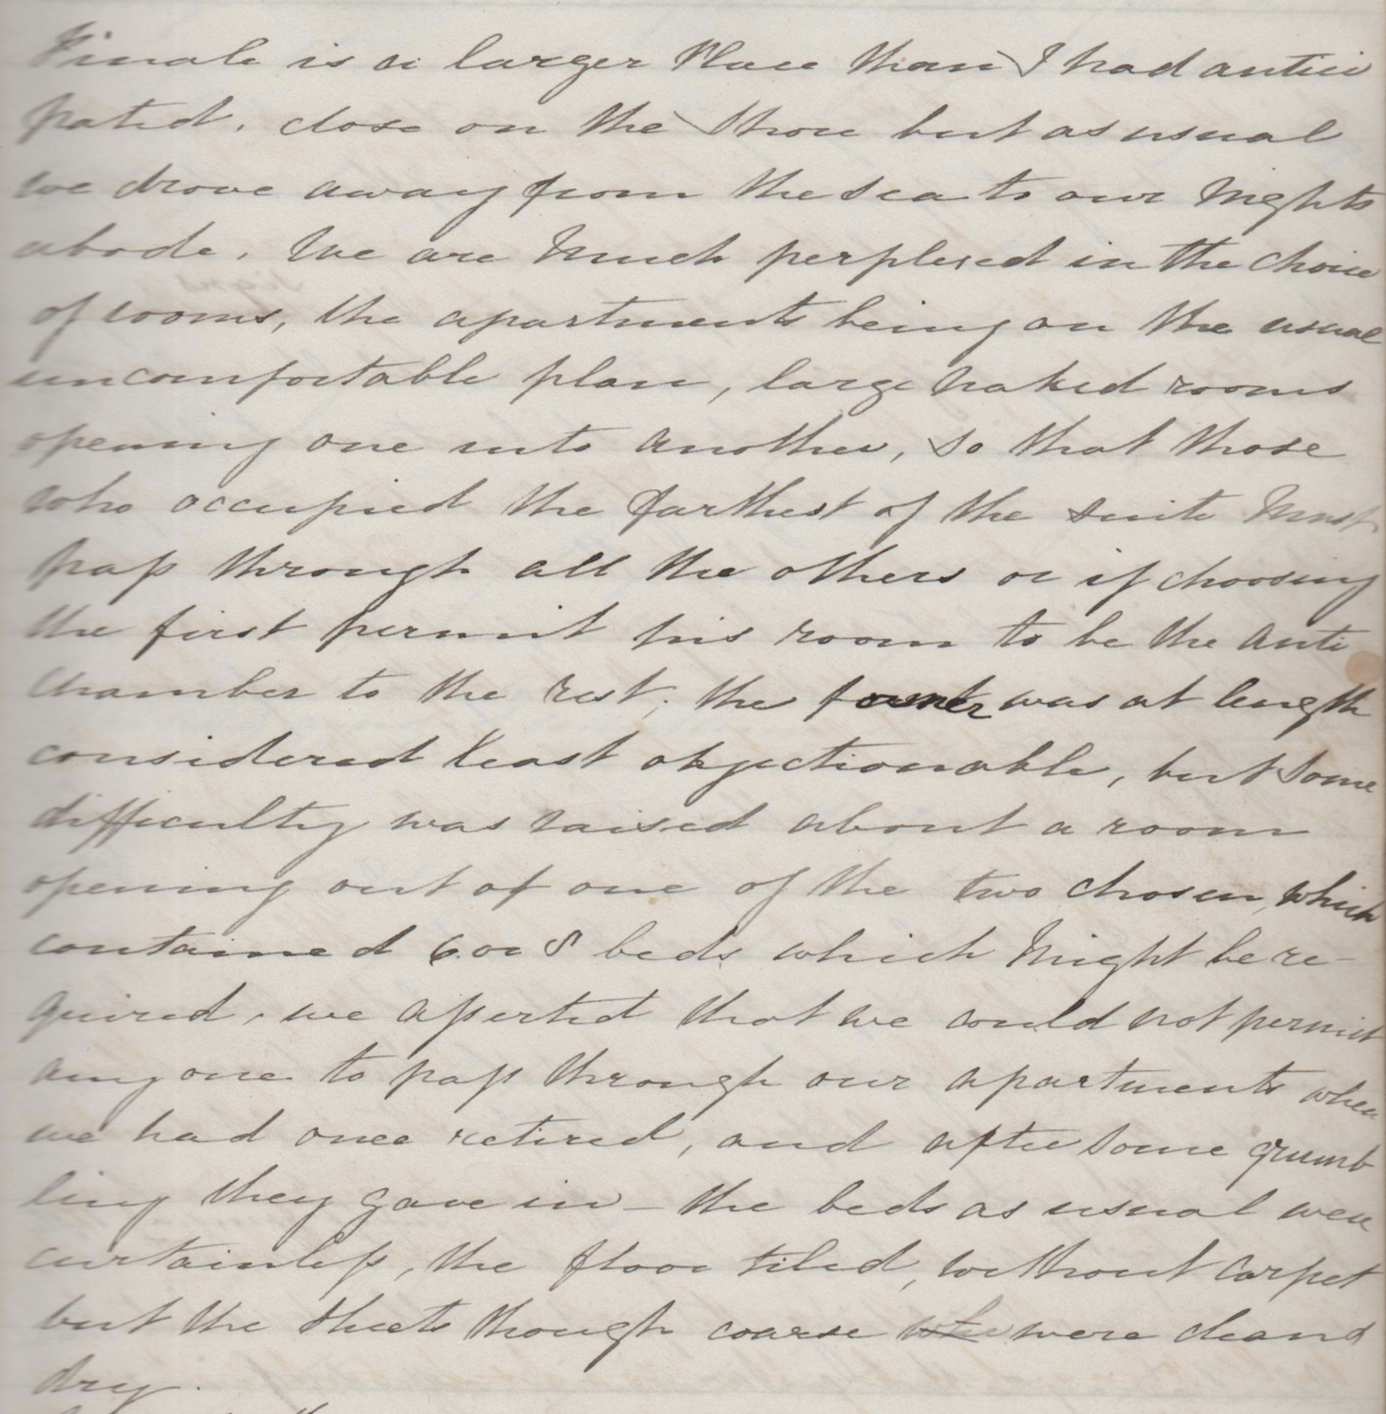 Finale is a larger Place than I had antici
pated. close on the Shore but as usual
we drove away from the sea to our Nights
abode. We are Much perplexed in the choice
of rooms, the apartments being on the usual
uncomfortable plan, large Naked rooms
opening one into another, so that those
who occupied the farthest of the suite Must
pass through all the others or if choosing
the first permit his room to be the anti
chamber to the rest; the former was at length
considered least objectionable, but some
difficulty was raised about a room
opening out of one of the two chosen, which
contained 6 or 8 beds which Might be re-
quired, we asserted that we could not permit
any one to pass through our apartments when
we had once retired, and after some grumb
ling they gave in – the beds as usual were
curtainless, the floor tiled, without carpet
but the sheets though coarse were clean &
dry.